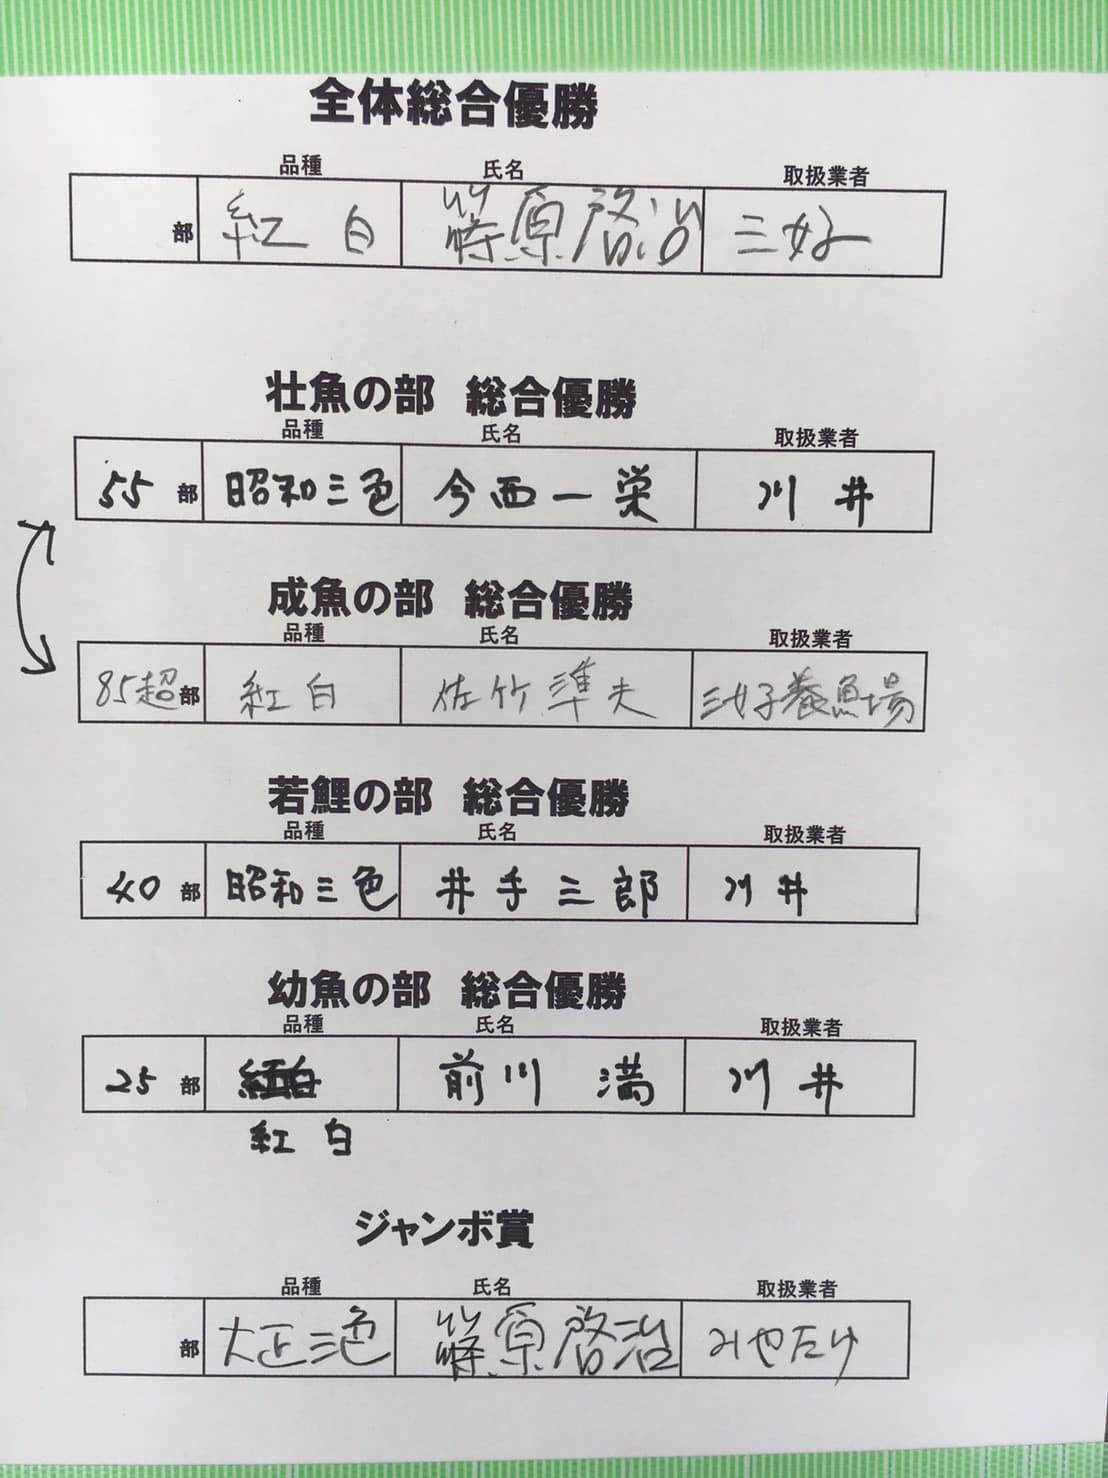 全体総合優勝
品種 氏名 取扱業者
部 紅白 篠原啓治 三好
壮魚の部 総合優勝
品種 氏名 取扱業者
55 部 昭和三色 今西一栄 川井
成魚の部 総合優勝
品種 氏名 取扱業者
85超部 紅白 佐竹準夫 三好養魚場
若鯉の部 総合優勝
品種 氏名 取扱業者
40 部 昭和三色 井手三郎 川井
幼魚の部 総合優勝
品種 氏名 取扱業者
25 部 紅白 前川 満 川井
紅白
ジャンボ賞
品種 氏名 取扱業者
部 大正三色 篠原啓治 みやたけ